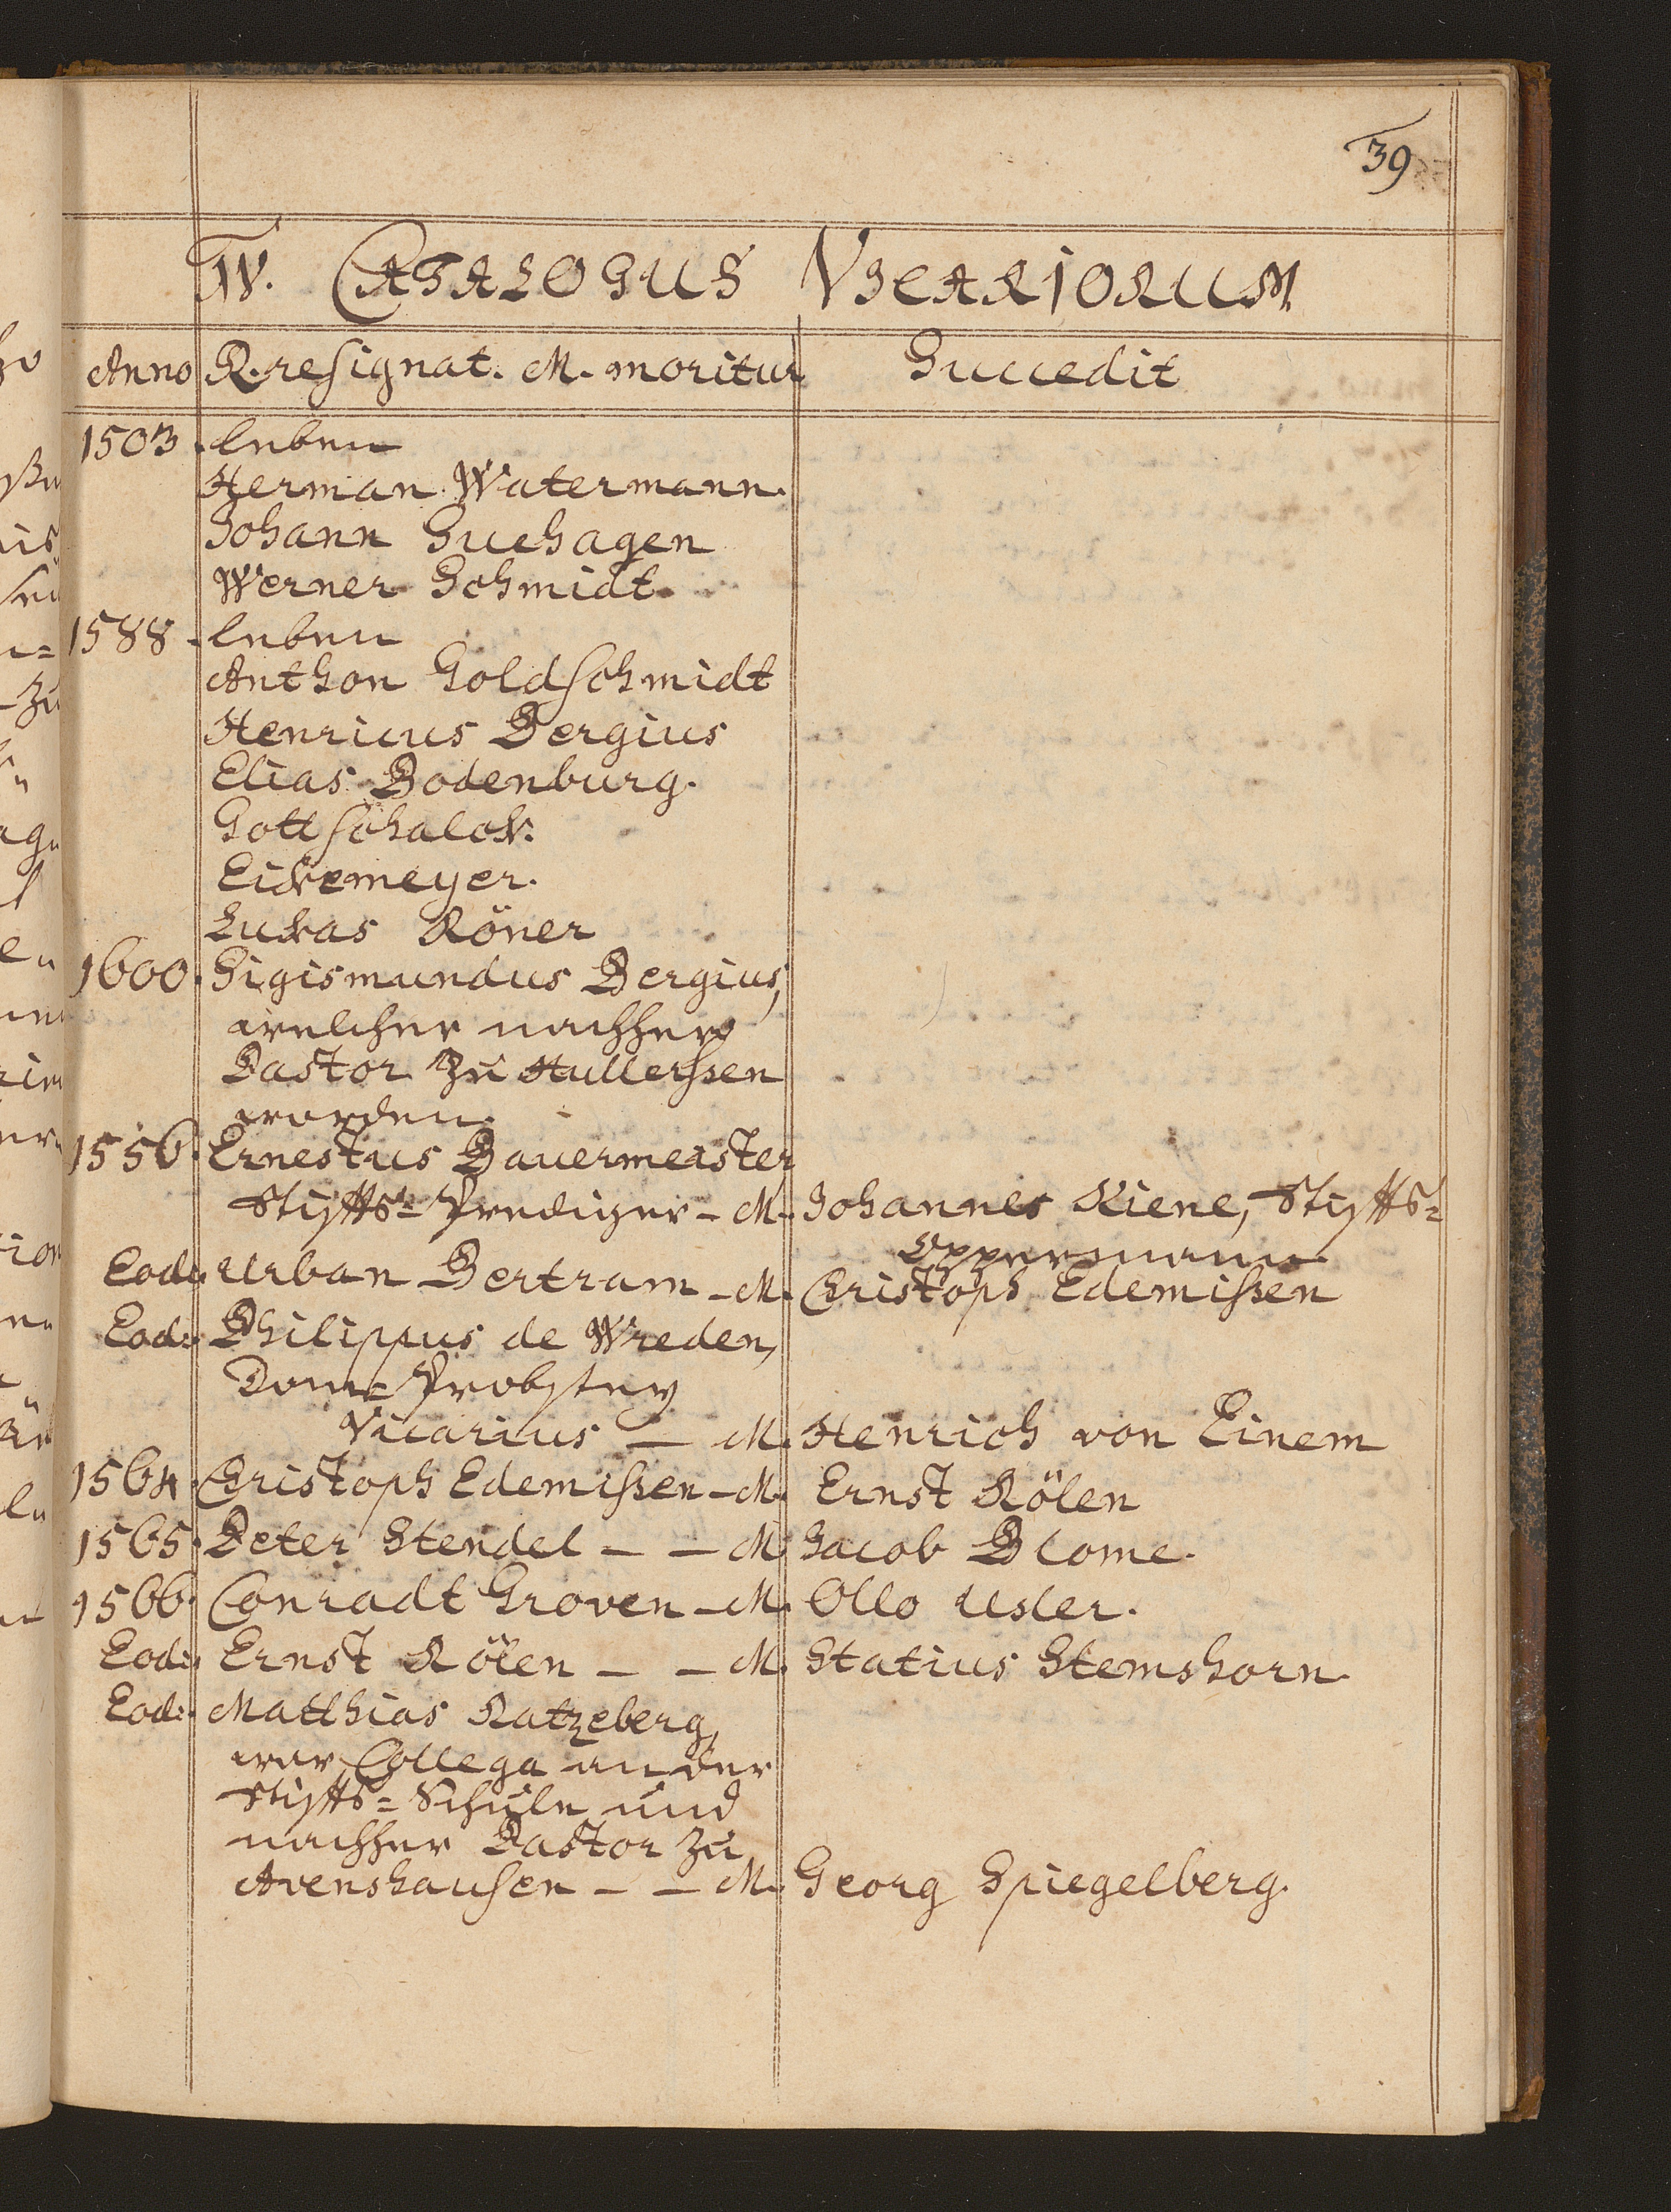 39
IV. CATALOGUS VICARIORUM
Anno R. resignat. M. moritur Succedit
1503. leben
Herman Watermann.
Johann Suehagen
Werner Schmidt.
1588. leben
Anthon Goldschmidt
Henricus Bergius
Elias Bodenburg.
Gottschalck.
Eickemeyer.
Lukas Röner
1600. Sigismundus Bergius,
welcher nachher
Pastor zu Hullerssen
worden.
1556. Ernestus Bauermeister
Stiffts-Prediger - M. Johannes Kiene, Stiffts-
Oppermann
Eod. Urban Bertram - M. Christoph Edemissen
Eod: Philippus de Wreden,
Dom-Probstey
Vicarius - M. Henrich von Einem
1564. Christoph Edemissen - M. Ernst Rölen
1565. Peter Stendel - - M. Jacob Blome.
1566. Conradt Groven - M. Otto Usler.
Eod: Ernst Rölen - - M. Statius Stemshorn.
Eod: Matthias Ratzeberg,
war Collega an der
Stiffts-Schule und
nachher Pastor zu
Avenshausen - - M. Georg Spiegelberg.